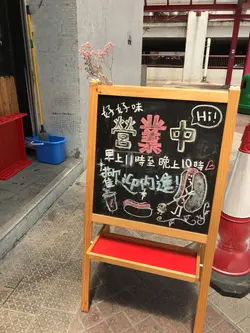 好好味
Hi!
營業中
早上11時至晚上10時
歡迎內進!